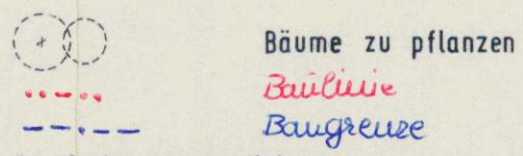 Bäume zu pflanzen
Baulinie
Baugrenze